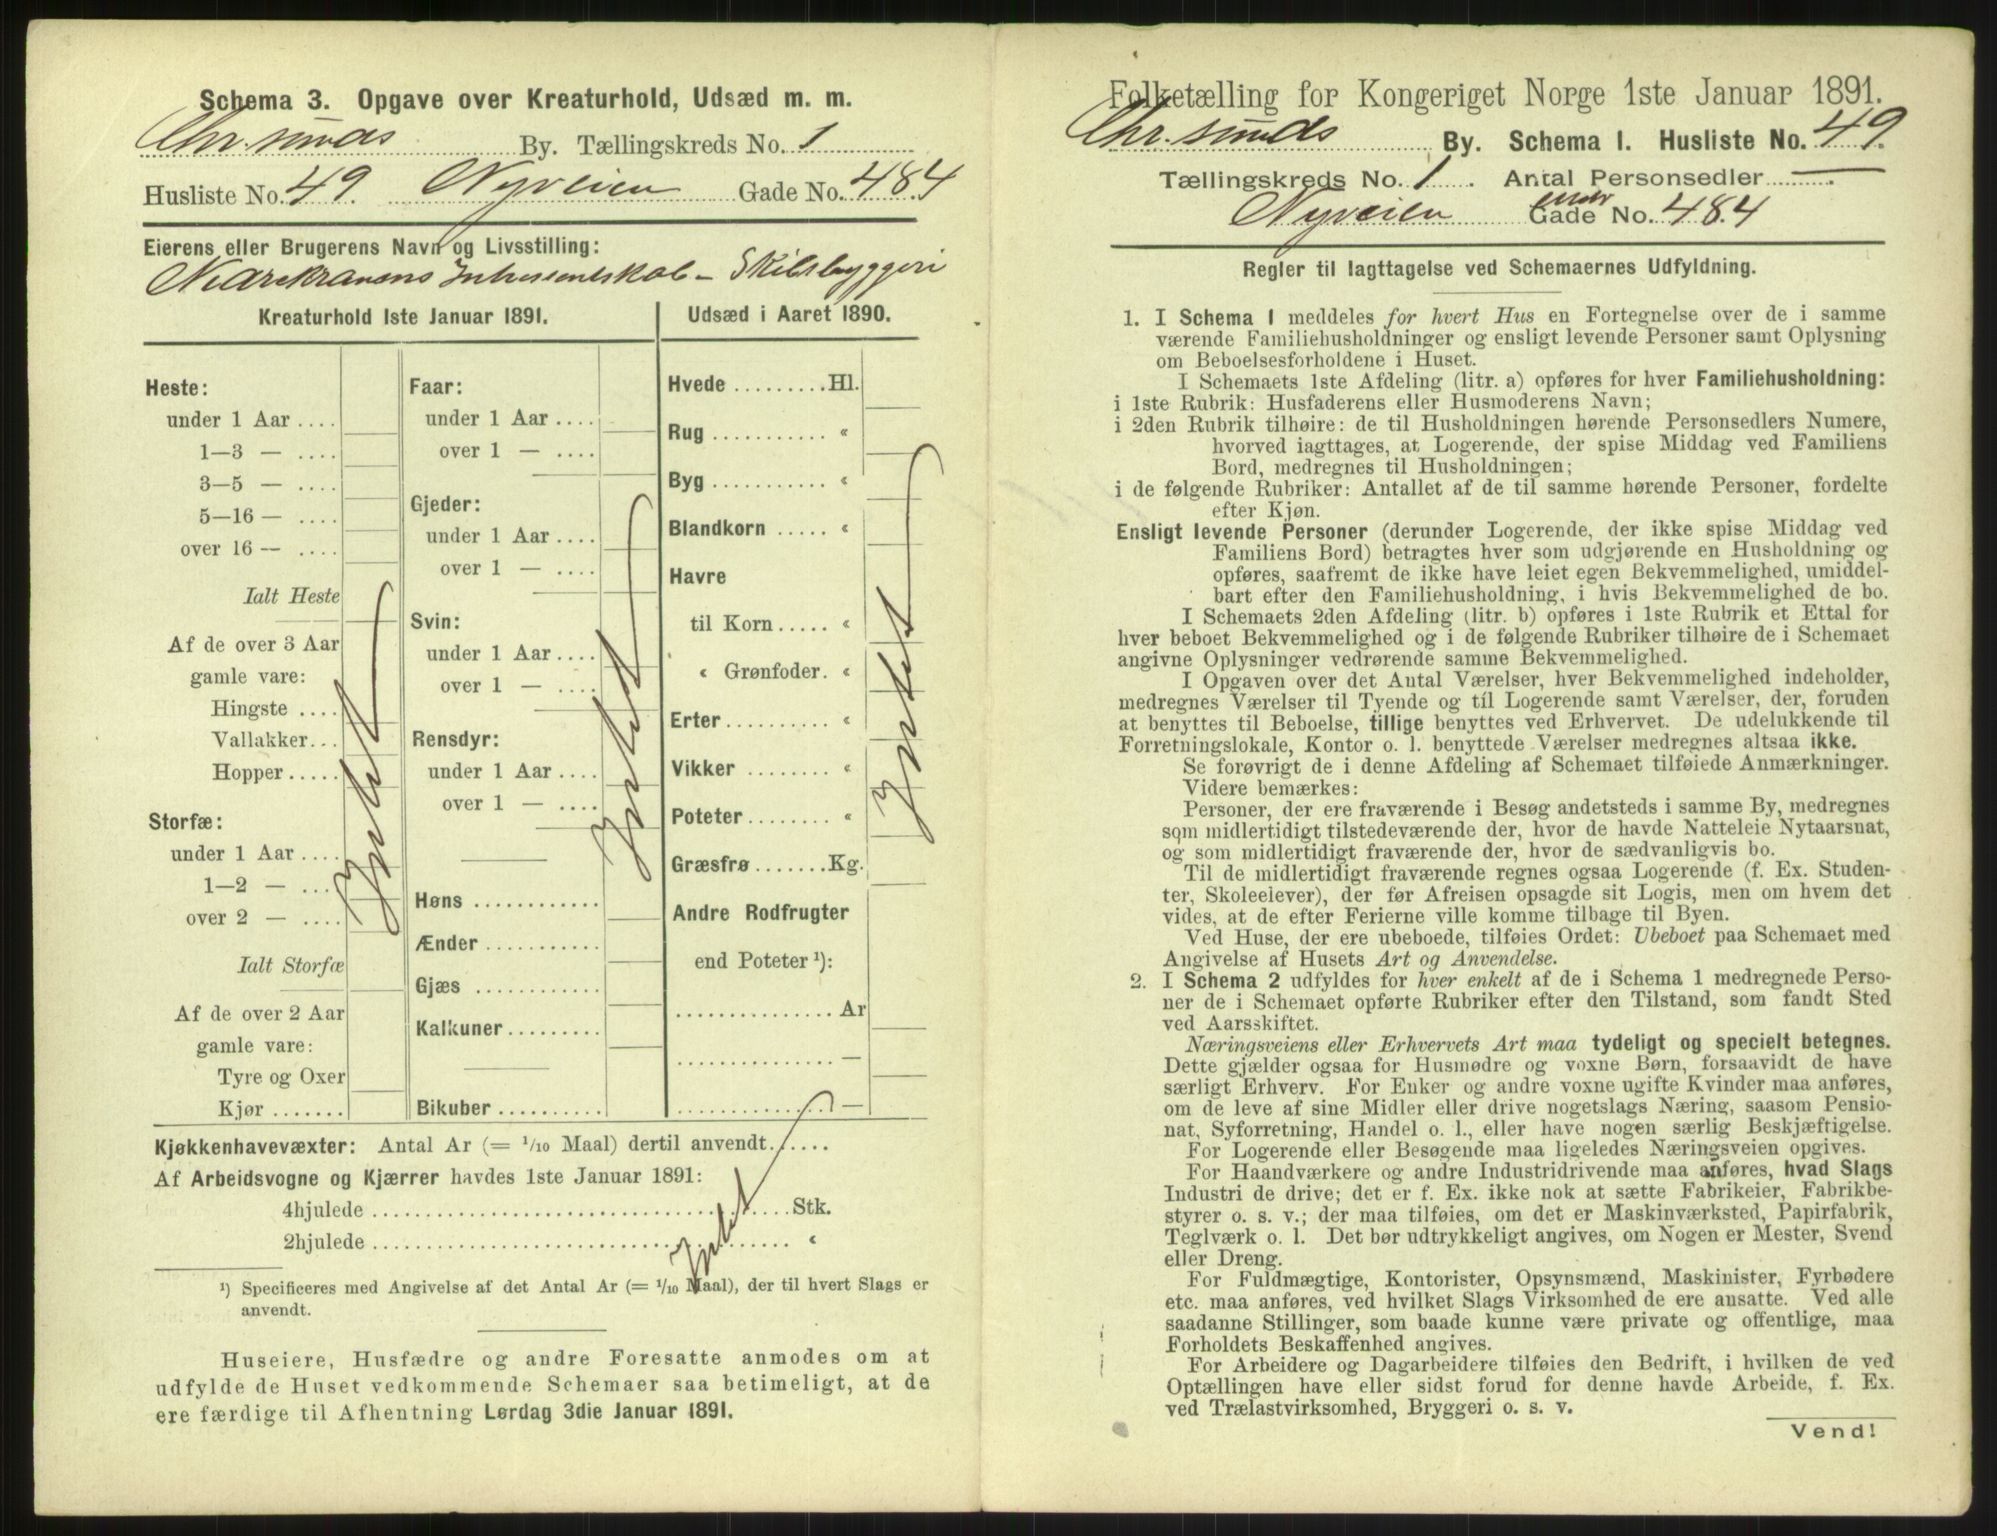 Schema 3. Opgave over Kreaturhold, Udsæd m. m.
Chr.sunds By. Tællingskreds No. 1
Husliste No. 49. Nyveien Gade No. 484
Eierens eller Brugerens Navn og Livsstilling:
Skibsbyggeri
Kreaturhold 1ste Januar 1891.
Heste:
under 1 Aar ....
1—3 — ....
3—5 — ....
5-16 — ....
over 16 — ....
Ialt Heste
Af de over 3 Aar
gamle vare:
Hingste ....
Vallakker...
Hopper.....
Storfæ:
under 1 Aar ....
1—2 — ...
over 2 — ....
Ialt Storfæ
Af de over 2 Aar
gamle vare:
Tyre og Oxer
Kjør .......
Intet
Faar:
under 1 Aar ....
over 1 — ....
Gjeder:
under 1 Aar ....
over 1 — ....
Svin:
under 1 Aar ....
over 1 — ....
Rensdyr:
under 1 Aar ....
over 1 — ....
Høns ............
Ænder ...........
Gjæs ............
Kalkuner.........
Bikuber ..........
Intet
Udsæd i Aaret 1890.
Hvede .........Hl.
Rug ........... «
Byg ........... «
Blandkorn ..... «
Havre
til Korn ..... «
« Grønfoder. «
Erter ......... «
Vikker ........ «
Poteter ........ «
Græsfrø .......Kg.
Andre Rodfrugter
end Poteter ¹):
............... Ar
............... —
............... —
Intet
Kjøkkenhavevæxter: Antal Ar (= 1/10 Maal) dertil anvendt......
Af Arbeidsvogne og Kjærrer havdes 1ste Januar 1891:
4hjulede ........................................ Stk.
2hjulede ........................................ «
Intet
¹) Specificeres med Angivelse af det Antal Ar (= 1/10 Maal), der til hvert Slags er
anvendt.
Huseiere, Husfædre og andre Foresatte anmodes om at
udfylde de Huset vedkommende Schemaer saa betimeligt, at de
ere færdige til Afhentning Lørdag 3die Januar 1891.
Folketælling for Kongeriget Norge 1ste Januar 1891.
Chr.sunds By. Schema I. Husliste No. 49.
Tællingskreds No. 1. Antal Personsedler —.
Nyveien Gade No. 484
Regler til Iagttagelse ved Schemaernes Udfyldning.
1. I Schema 1 meddeles for hvert Hus en Fortegnelse over de i samme
værende Familiehusholdninger og ensligt levende Personer samt Oplysning
om Beboelsesforholdene i Huset.
I Schemaets 1ste Afdeling (litr. a) opføres for hver Familiehusholdning:
i 1ste Rubrik: Husfaderens eller Husmoderens Navn;
i 2den Rubrik tilhøire: de til Husholdningen hørende Personsedlers Numere,
hvorved iagttages, at Logerende, der spise Middag ved Familiens
Bord, medregnes til Husholdningen;
i de følgende Rubriker: Antallet af de til samme hørende Personer, fordelte
efter Kjøn.
Ensligt levende Personer (derunder Logerende, der ikke spise Middag ved
Familiens Bord) betragtes hver som udgjørende en Husholdning og
opføres, saafremt de ikke have leiet egen Bekvemmelighed, umiddel-
bart efter den Familiehusholdning, i hvis Bekvemmelighed de bo.
I Schemaets 2den Afdeling (litr. b) opføres i 1ste Rubrik et Ettal for
hver beboet Bekvemmelighed og i de følgende Rubriker tilhøire de i Schemaet
angivne Oplysninger vedrørende samme Bekvemmelighed.
I Opgaven over det Antal Værelser, hver Bekvemmelighed indeholder,
medregnes Værelser til Tyende og til Logerende samt Værelser, der, foruden
at benyttes til Beboelse, tillige benyttes ved Erhvervet. De udelukkende til
Forretningslokale, Kontor o. l. benyttede Værelser medregnes altsaa ikke.
Se forøvrigt de i denne Afdeling af Schemaet tilføiede Anmærkninger.
Videre bemærkes:
Personer, der ere fraværende i Besøg andetsteds i samme By, medregnes
som midlertidigt tilstedeværende der, hvor de havde Natteleie Nytaarsnat,
og som midlertidigt fraværende der, hvor de sædvanligvis bo.
Til de midlertidigt fraværende regnes ogsaa Logerende (f. Ex. Studen-
ter, Skoleelever), der før Afreisen opsagde sit Logis, men om hvem det
vides, at de efter Ferierne ville komme tilbage til Byen.
Ved Huse, der ere ubeboede, tilføies Ordet: Ubeboet paa Schemaet med
Angivelse af Husets Art og Anvendelse.
2. I Schema 2 udfyldes for hver enkelt af de i Schema 1 medregnede Perso-
ner de i Schemaet opførte Rubriker efter den Tilstand, som fandt Sted
ved Aarsskiftet.
Næringsveiens eller Erhvervets Art maa tydeligt og specielt betegnes.
Dette gjælder ogsaa for Husmødre og voxne Børn, forsaavidt de have
særligt Erhverv. For Enker og andre voxne ugifte Kvinder maa anføres,
om de leve af sine Midler eller drive nogetslags Næring, saasom Pensio-
nat, Syforretning, Handel o. l., eller have nogen særlig Beskjæftigelse.
For Logerende eller Besøgende maa ligeledes Næringsveien opgives.
For Haandværkere og andre Industridrivende maa anføres, hvad Slags
Industri de drive; det er f. Ex. ikke nok at sætte Fabrikeier, Fabrikbe-
styrer o. s. v.; der maa tilføies, om det er Maskinværksted, Papirfabrik,
Teglværk o. l. Det bør udtrykkeligt angives, om Nogen er Mester, Svend
eller Dreng.
For Fuldmægtige, Kontorister, Opsynsmænd, Maskinister, Fyrbødere
etc. maa anføres, ved hvilket Slags Virksomhed de ere ansatte. Ved alle
saadanne Stillinger, som baade kunne være private og offentlige, maa
Forholdets Beskaffenhed angives.
For Arbeidere og Dagarbeidere tilføies den Bedrift, i hvilken de ved
Optællingen have eller sidst forud for denne havde Arbeide, f. Ex.
ved Trælastvirksomhed, Bryggeri o. s. v.
Vend!